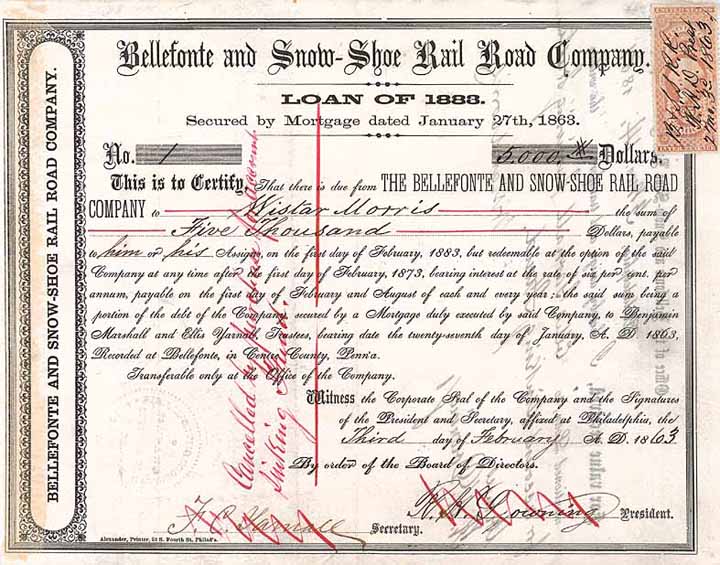 Bellefonte and Snow-Shoe Rail Road Company.
LOAN OF 1883.
Secured by Mortgage dated January 27th, 1863.
No. 1 5,000 Dollars.
This is to Certify, That there is due from THE BELLEFONTE AND SNOW-SHOE RAIL ROAD
COMPANY to Wistar Morris the sum of
Five Thousand Dollars, payable
to him or his Assigns, on the first day of February, 1883, but redeemable at the option of the said
Company at any time after the first day of February, 1873, bearing interest at the rate of six per cent. per
annum, payable on the first day of February and August of each and every year; the said sum being a
portion of the debt of the Company, secured by a Mortgage duly executed by said Company, to Benjamin
Marshall and Ellis Yarnall, Trustees, bearing date the twenty-seventh day of January, A. D. 1863,
Recorded at Bellefonte, in Centre County, Penn'a.
Transferable only at the Office of the Company.
Witness the Corporate Seal of the Company and the Signatures
of the President and Secretary, affixed at Philadelphia, the
Third day of February A. D. 1863
By order of the Board of Directors.
Secretary.
President.
Alexander, Printer, 52 S. Fourth St. Philad'a.
BELLEFONTE AND SNOW-SHOE RAIL ROAD COMPANY.
Cancelled by purchase for account
Sinking Fund
UNITED STATES
INTER. REV.
1863